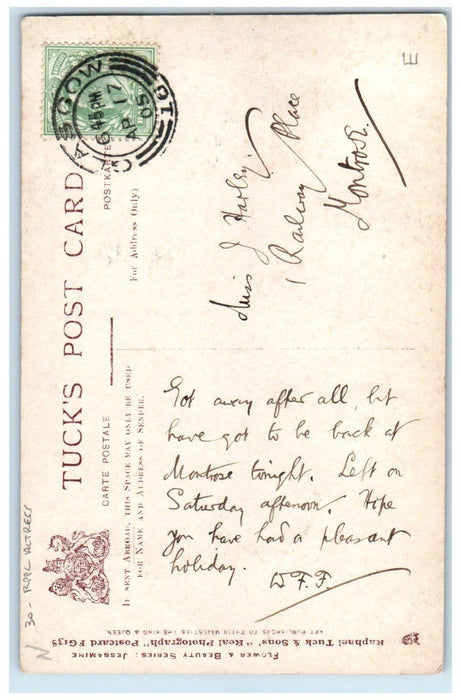 TUCK'S POST CARD
CARTE POSTALE
POSTKARTE
(For Address Only)
IF SENT ABROAD, THIS SPACE MAY ONLY BE USED
FOR NAME AND ADDRESS OF SENDER.
GLASGOW
6 45 PM
AP 17
05
Miss J Harley.
1 Railway Place
Montrose.
Got away after all, bt
have got to be back at
Montrose tonight. Left on
Saturday afternoon. Hope
you have had a pleasant
holiday.
W.F.F.
FLOWER & BEAUTY SERIES: JESSAMINE
Raphael Tuck & Sons' "Real Photograph" Postcard FG138
ART PUBLISHERS TO THEIR MAJESTIES THE KING & QUEEN.
30 - RPPC ACTRESS
N
E